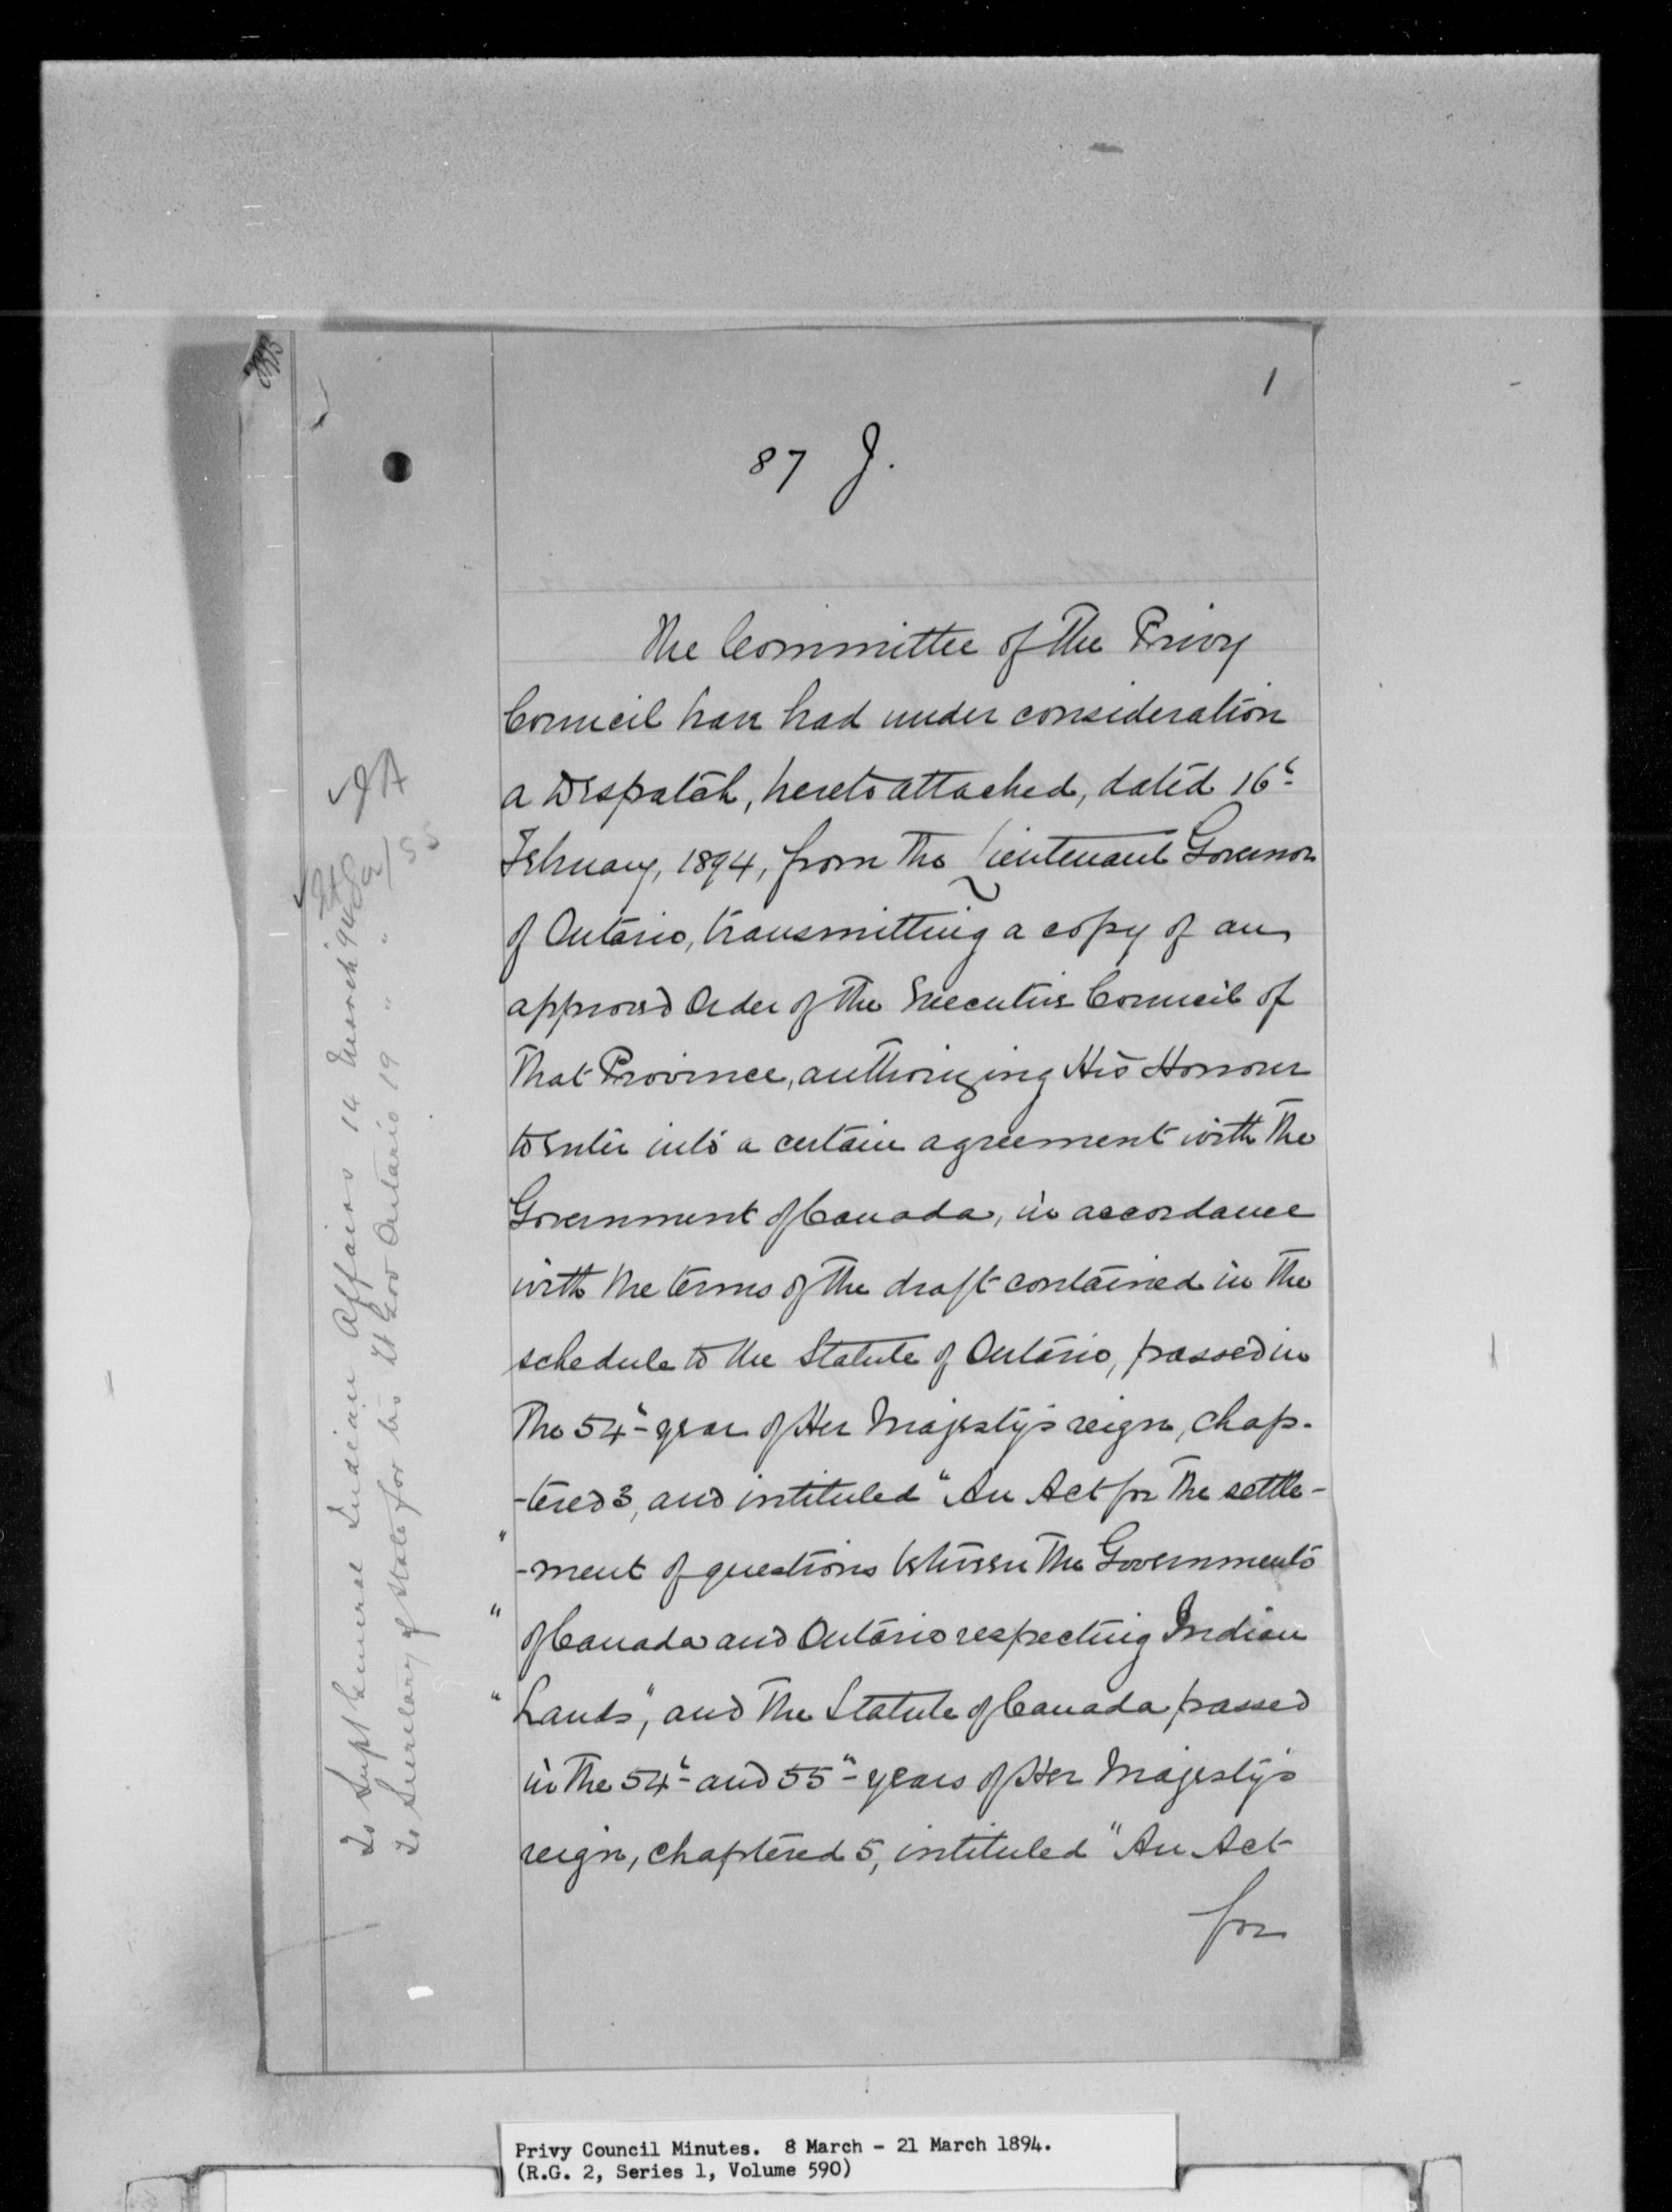 1
87 J.
The Committee of the Privy
Council have had under consideration
a Despatch, hereto attached, dated 16th
February, 1894, from the Lieutenant Governor
of Ontario, transmitting a copy of an
approved Order of the Executive Council of
that Province, authorizing His Honour
to enter into a certain agreement with the
Government of Canada, in accordance
with the terms of the draft contained in the
schedule to the Statute of Ontario, passed in
the 54th year of Her Majesty's reign, chap-
-tered 3, and intituled "An Act for the settle-
"-ment of questions between the Governments
"of Canada and Ontario respecting Indian
"Lands", and the Statute of Canada passed
in the 54th and 55th years of Her Majesty's
reign, chaptered 5, intituled "An Act
for
To Supt General Indian Affairs 14 March '94
To Secretary of State for his Lt Gov Ontario 19 " "
IA
SS
Privy Council Minutes. 8 March - 21 March 1894.
(R.G. 2, Series 1, Volume 590)